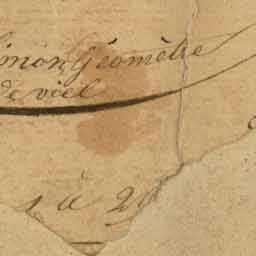 imon, Géomètre
de viel
1 à 20